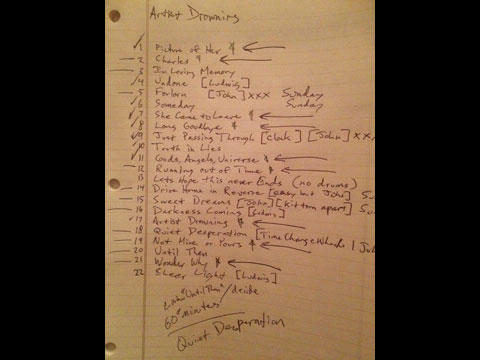 Artist Drowning
1 Picture of Her $ ←
2 Charles $ ←
3 In Loving Memory
4 Undone [Ludwig]
5 Forlorn [John] xxx Sunday
6 Someday Sunday
7 She Came to Leave $ ←
8 Long Goodbye $ ←
9 Just Passing Through [clark] [John] xx
10 Truth in Lies
11 Gods, Angels, Universe $ ←
12 Running out of Time $ ←
13 Lets Hope this never Ends (no drums)
14 Drive Home in Reverse [easy but John]
15 Sweet Dreams [John] [kit tom apart]
16 Darkness Coming [Ludwig]
17 Artist Drowning $ ←
18 Quiet Desperation [Time Change
19 Not Mine or Yours $ ←
20 Until Then
21 Wonder Why $ ←
22 Sheer Light [Ludwig]
"Until Then" / decide
60 minutes
Quiet Desperation